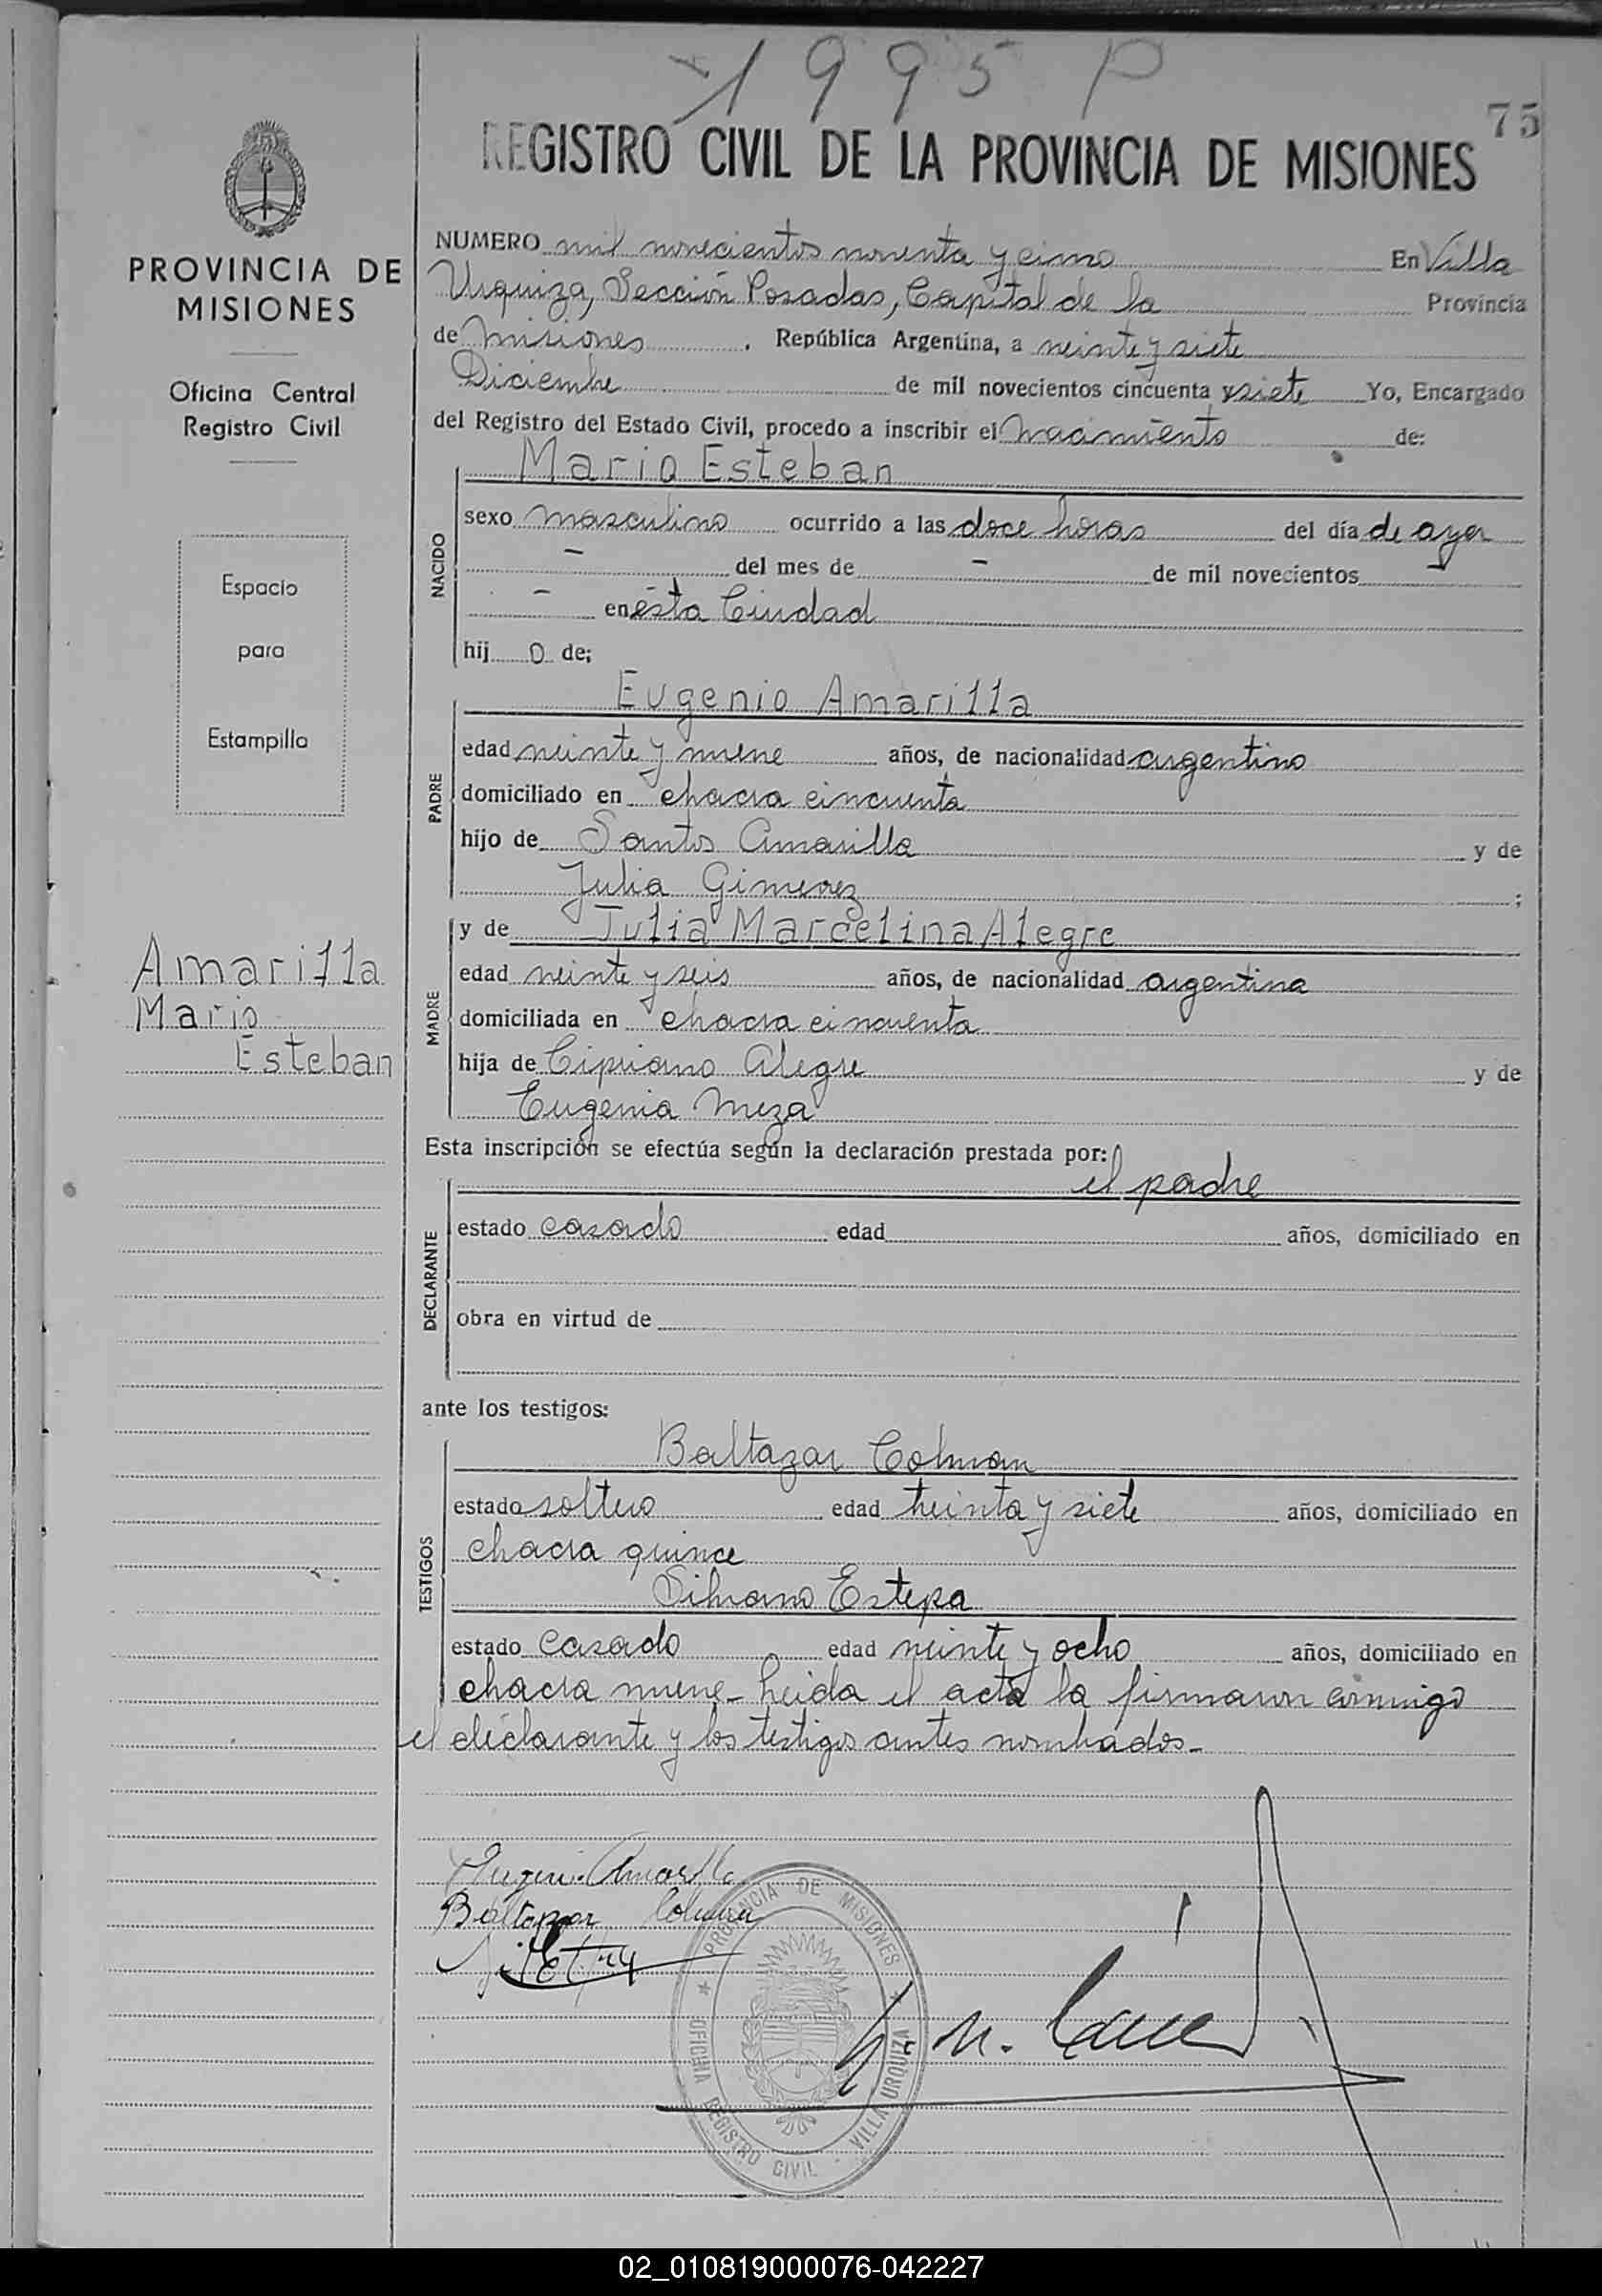 1995 P
75
REGISTRO CIVIL DE LA PROVINCIA DE MISIONES
PROVINCIA DE
MISIONES
Oficina Central
Registro Civil
Espacio
para
Estampilla
Amarilla
Mario
Esteban
NUMERO mil novecientos noventa y cinco En Villa
Urquiza, Sección Posadas, Capital de la Provincia
de Misiones, República Argentina, a veinte y siete
Diciembre de mil novecientos cincuenta y siete Yo, Encargado
del Registro del Estado Civil, procedo a inscribir el nacimiento de:
NACIDO
Mario Esteban
sexo masculino ocurrido a las doce horas del día de ayer
- del mes de - de mil novecientos
- en ésta Ciudad
hij o de;
PADRE
Eugenio Amarilla
edad veinte y nueve años, de nacionalidad argentino
domiciliado en chacra cincuenta
hijo de Santos Amarilla y de
Julia Gimenez ;
MADRE
y de Julia Marcelina Alegre
edad veinte y seis años, de nacionalidad argentina
domiciliada en chacra cincuenta
hija de Cipriano Alegre y de
Eugenia Meza
Esta inscripción se efectúa según la declaración prestada por:
el padre
DECLARANTE
estado casado edad años, domiciliado en
obra en virtud de
ante los testigos:
TESTIGOS
Baltazar Colman
estado soltero edad treinta y siete años, domiciliado en
chacra quince
Silvano Estepa
estado casado edad veinte y ocho años, domiciliado en
chacra nueve - Leida el acta la firmaron conmigo
el declarante y los testigos antes nombrados -
Eugenio Amarilla
Baltazar Colman
PROVINCIA DE MISIONES
OFICINA REGISTRO CIVIL - VILLA URQUIZA
02_010819000076-042227